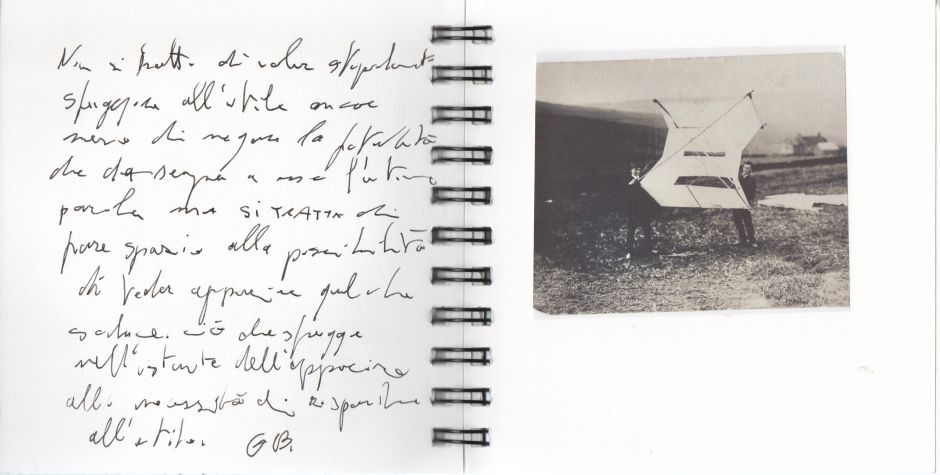 Non si tratta di voler
sfuggire all'utile ancor
meno di negare la fatalità
che a l'ultima
parola ma SI TRATTA di
fare spazio alla possibilità
di veder apparire che
seduce. ciò che sfugge
nell'istante dell'apparire
alla necessità di
all'utile. GB.